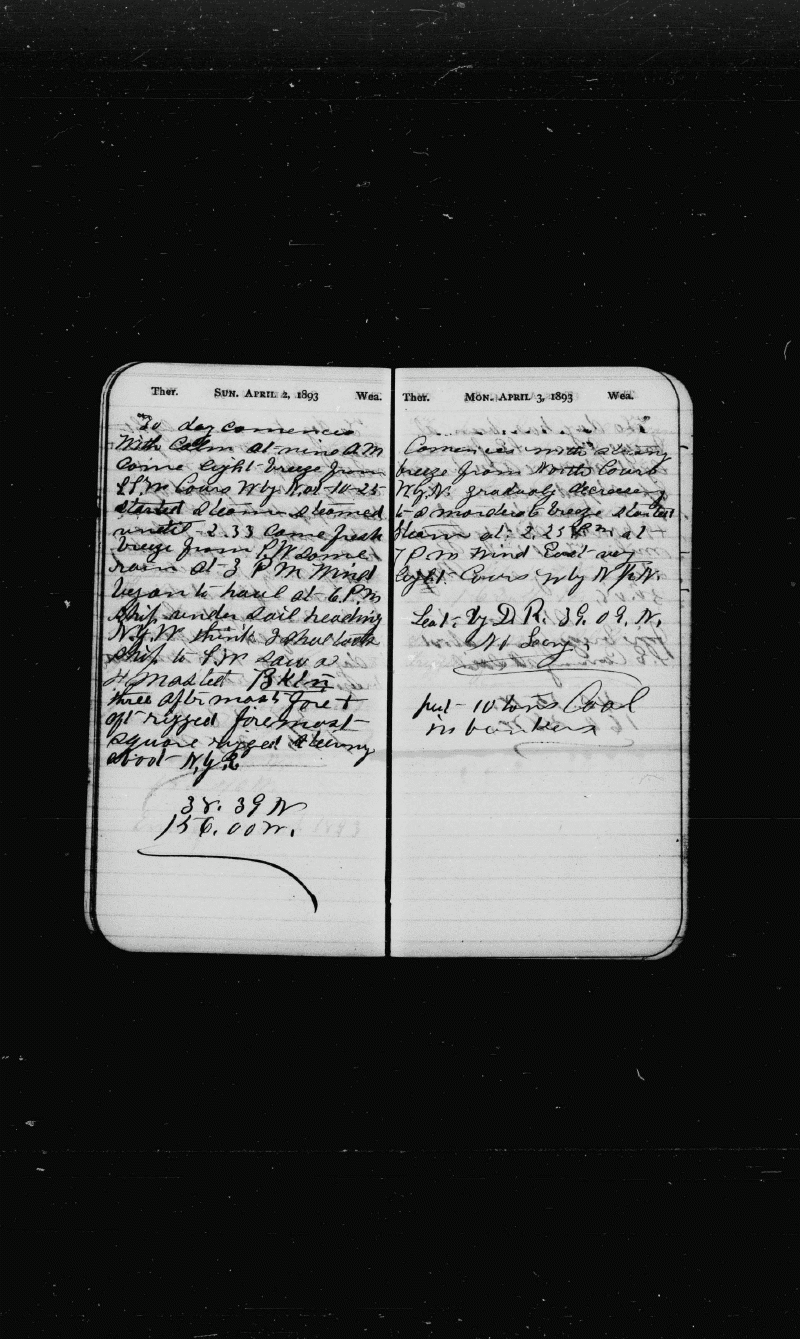 Ther. SUN. APRIL 2, 1893 Wea.
To day comences
With Calm at nine A.M
come light breeze from
Cours W by N. at 10-25
started steam steamed
until 2.33 came fresh
breeze from S.W some
rain at 3 P.M Wind
began to haul at 6. P.M
Ship under sail heading
N.y.W think I shal tack
ship to S.W saw a
4 masted Bktn
three after mast fore &
aft rigged foremost
square rigged steering
about N.y.E
38. 39 N
156. 00 W.
Ther. MON. APRIL 3, 1893 Wea.
Comences with strong
breeze from North Cours
W.y.N. gradualy decreesing
to a moderate breeze started
steam at. 2.25 P.m at
7 P.m Wind East very
light Cours W by N
Lat. by D. R. 39. 09. N.
No Long.
put 10 tons Coal
in bunkers